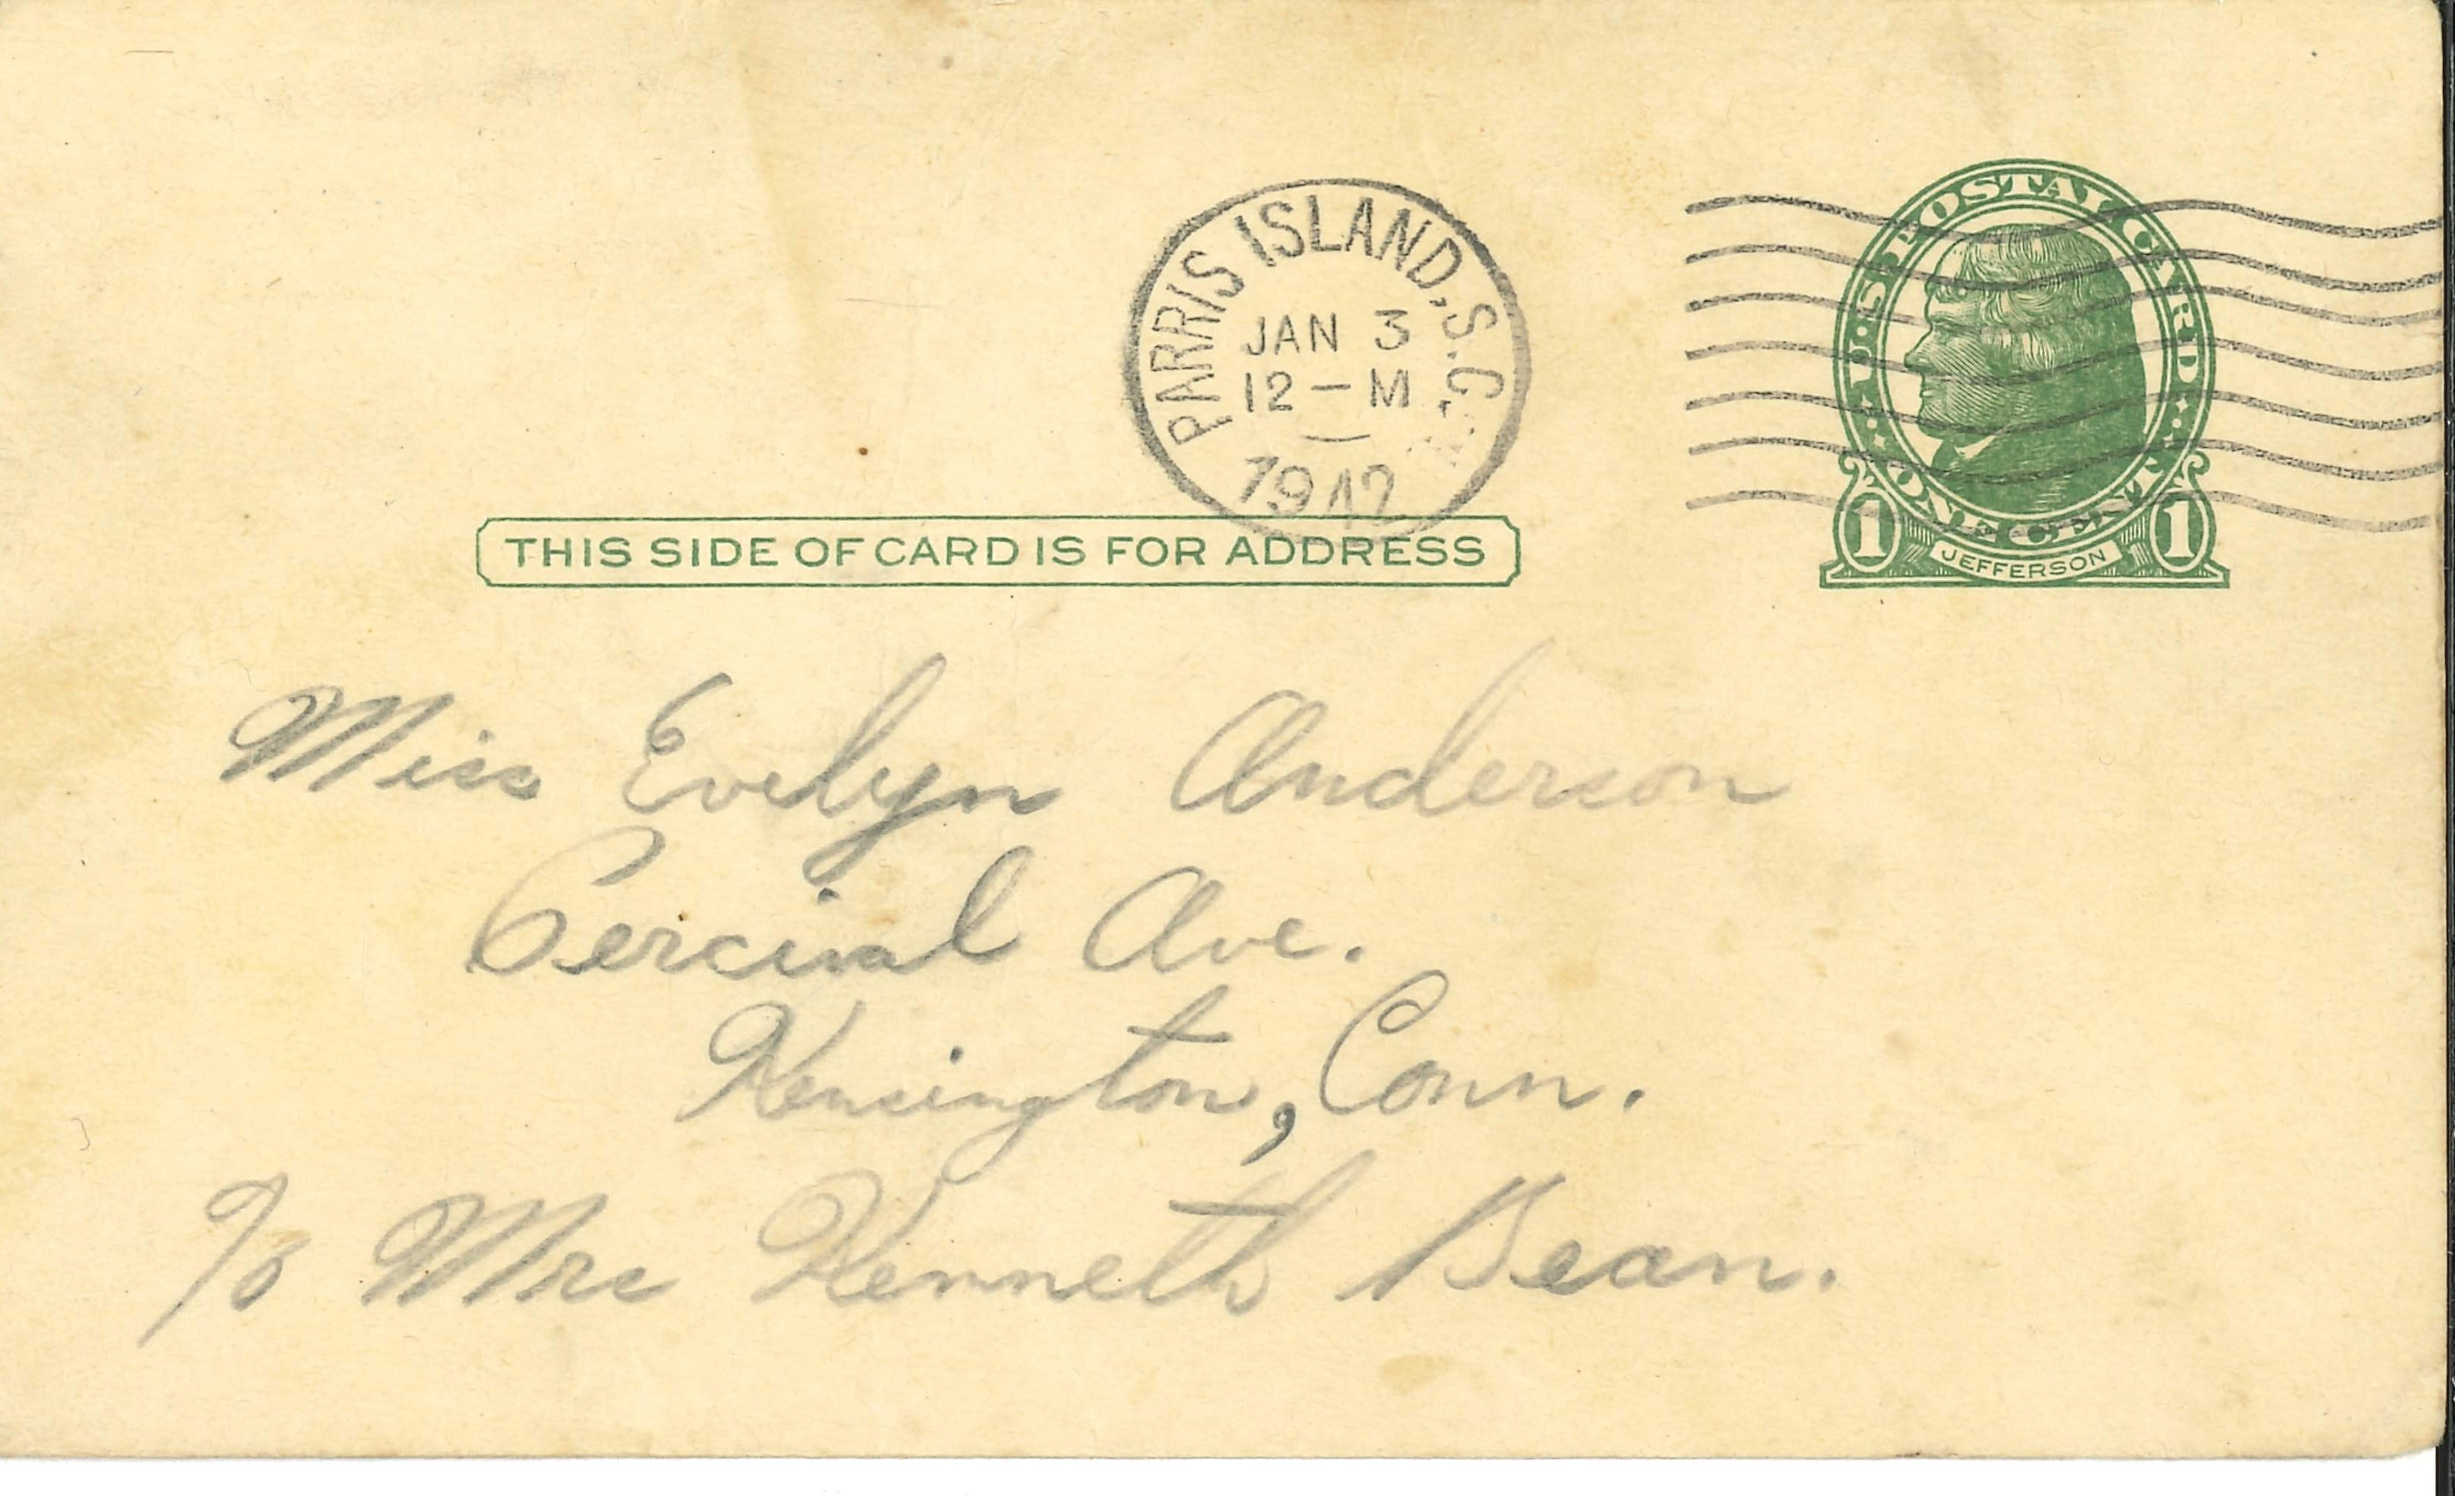 PARRIS ISLAND, S.C.
JAN 3
12 - M
1942
U.S. POSTAL CARD
ONE CENT
1 JEFFERSON 1
THIS SIDE OF CARD IS FOR ADDRESS
Miss Evelyn Anderson
Percival Ave.
Kensington, Conn.
c/o Mrs Kenneth Bean.